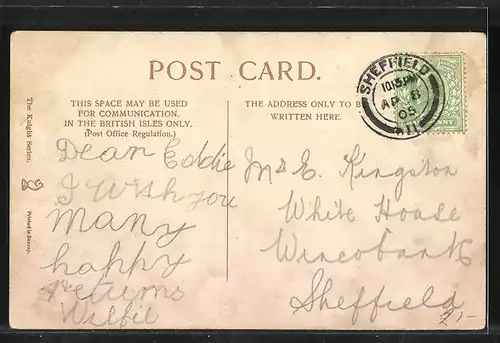 POST CARD.
THIS SPACE MAY BE USED
FOR COMMUNICATION.
IN THE BRITISH ISLES ONLY.
(Post Office Regulation.)
THE ADDRESS ONLY TO BE
WRITTEN HERE.
The Knight Series.
Printed in Saxony.
SHEFFIELD
1015PM
AP 6
05
Dear Eddie
I wish you
many
happy
returns
Wilfie
Mr E. Kingston
White House
Wincobank
Sheffield
2,-